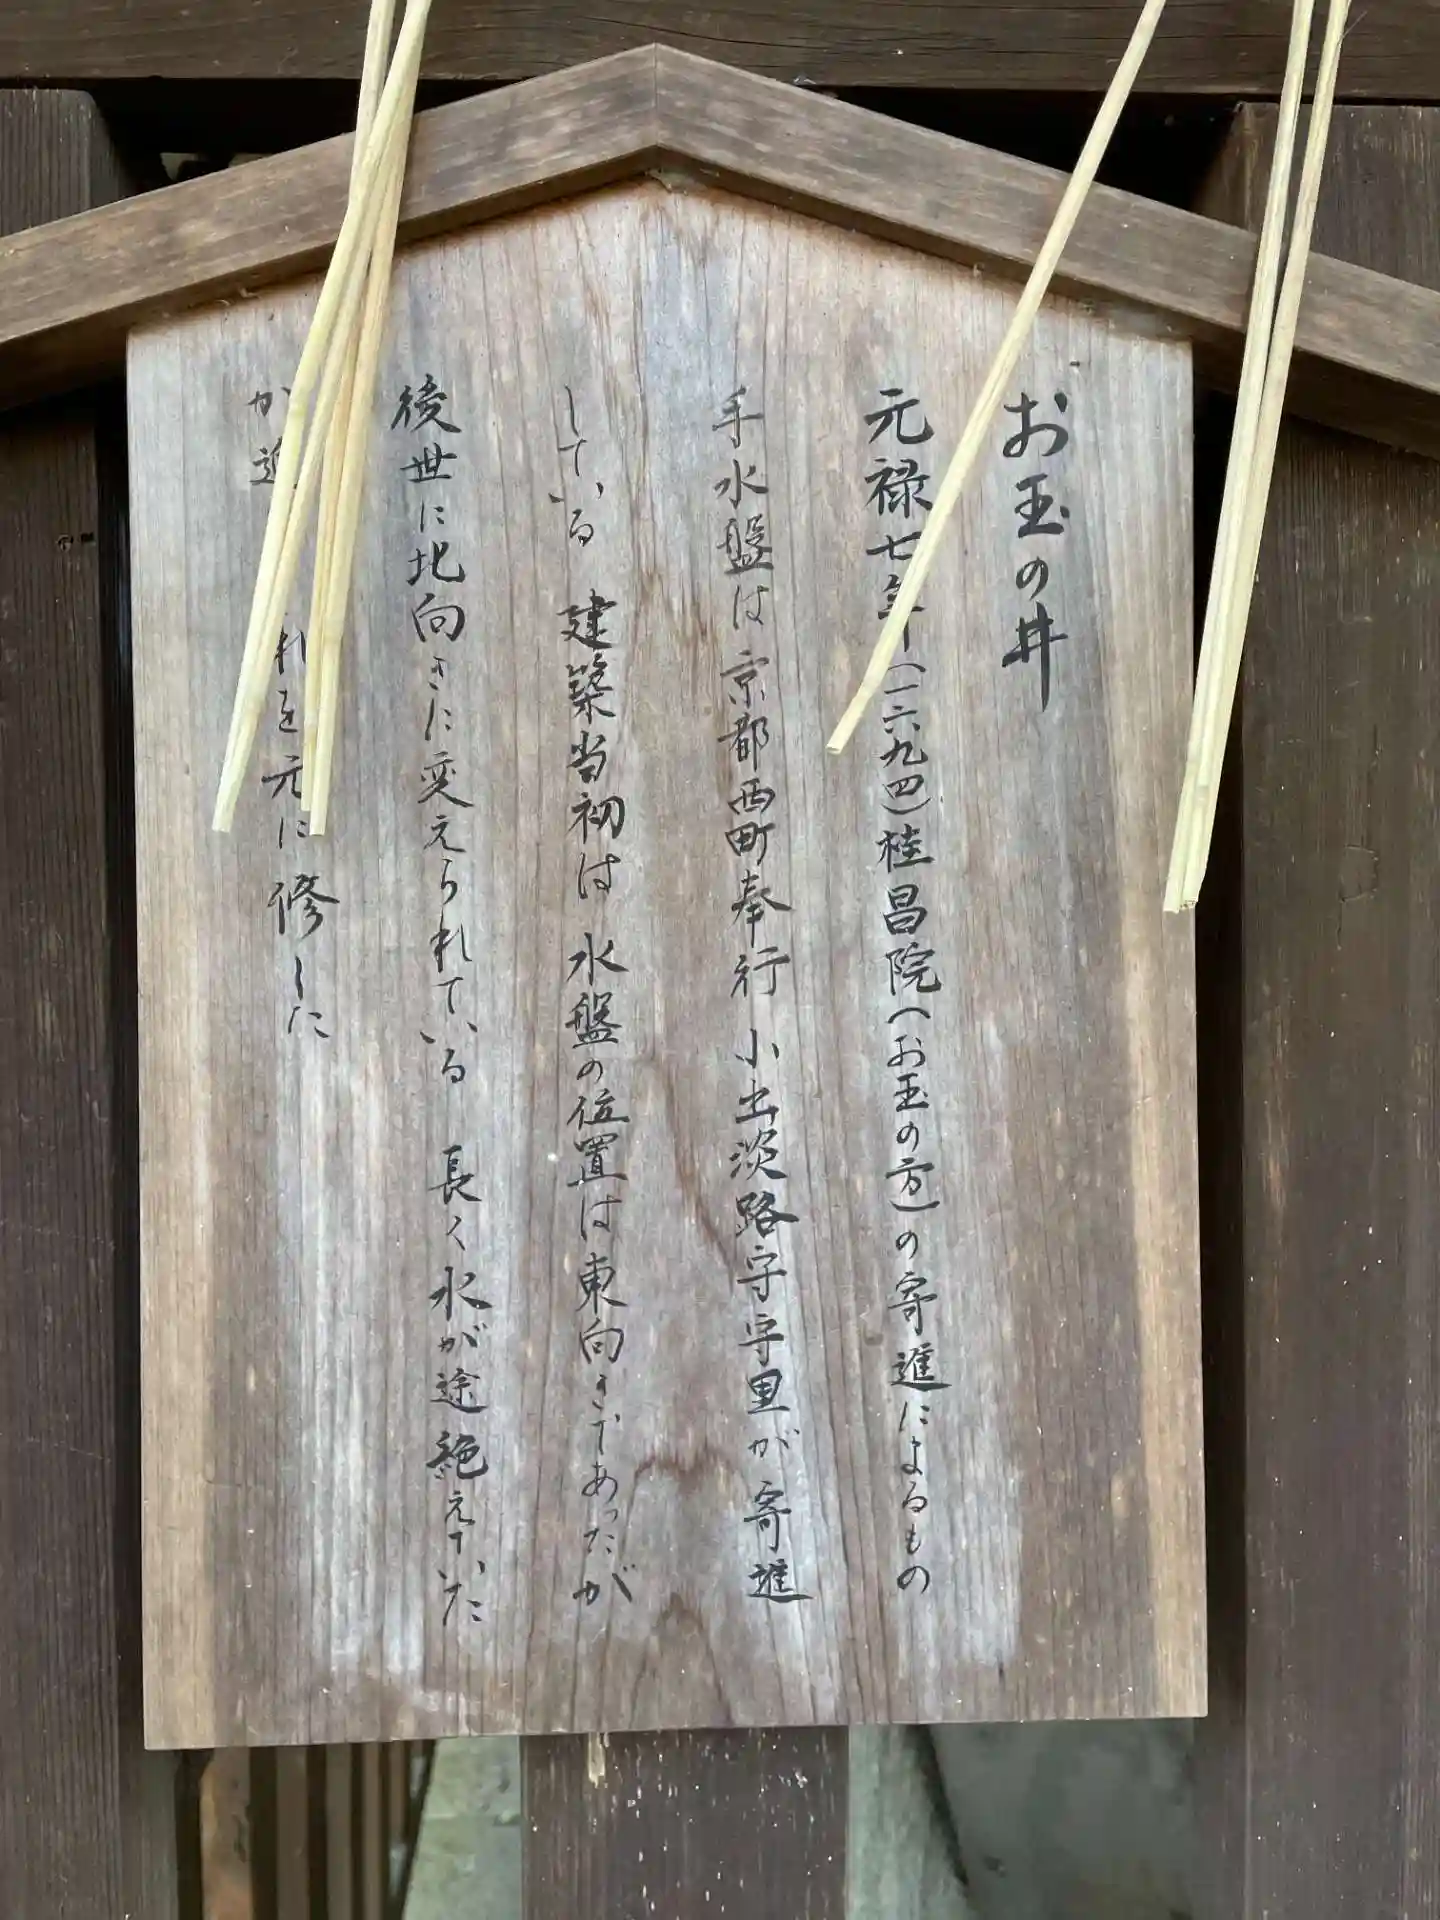 お玉の井
元禄七年(一六九四)桂昌院(お玉の方)の寄進によるもの
手水盤は京都西町奉行小出淡路守守里が寄進
している 建築当初は水盤の位置は東向きであったが
後世に北向きに変えられている 長く水が途絶えていた
が近 れを元に修した